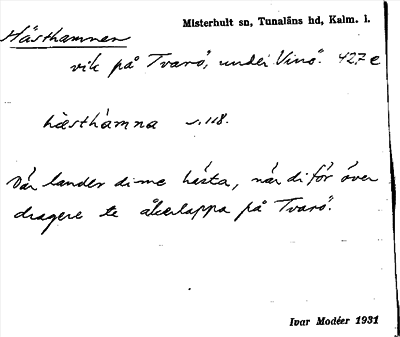 Misterhult sn, Tunaläns hd, Kalm. l.
Hästhamnen
vik på Tvarö, under Vinö. 427 e
hästhamna s. 118.
Där lander di me hästa, när di för över
dragere te åkerlappa på Tvarö.
Ivar Modéer 1931